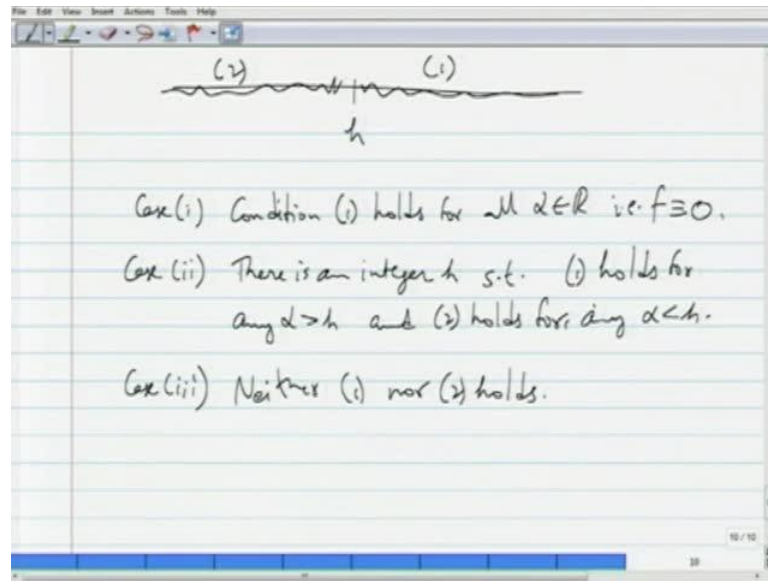 File Edit View Insert Actions Tools Help
(2) (1)
h
Case (i) Condition (1) holds for all α∈R i.e. f≡0.
Case (ii) There is an integer h s.t. (1) holds for
any α>h and (2) holds for any α<h.
Case (iii) Neither (1) nor (2) holds.
10/10
10